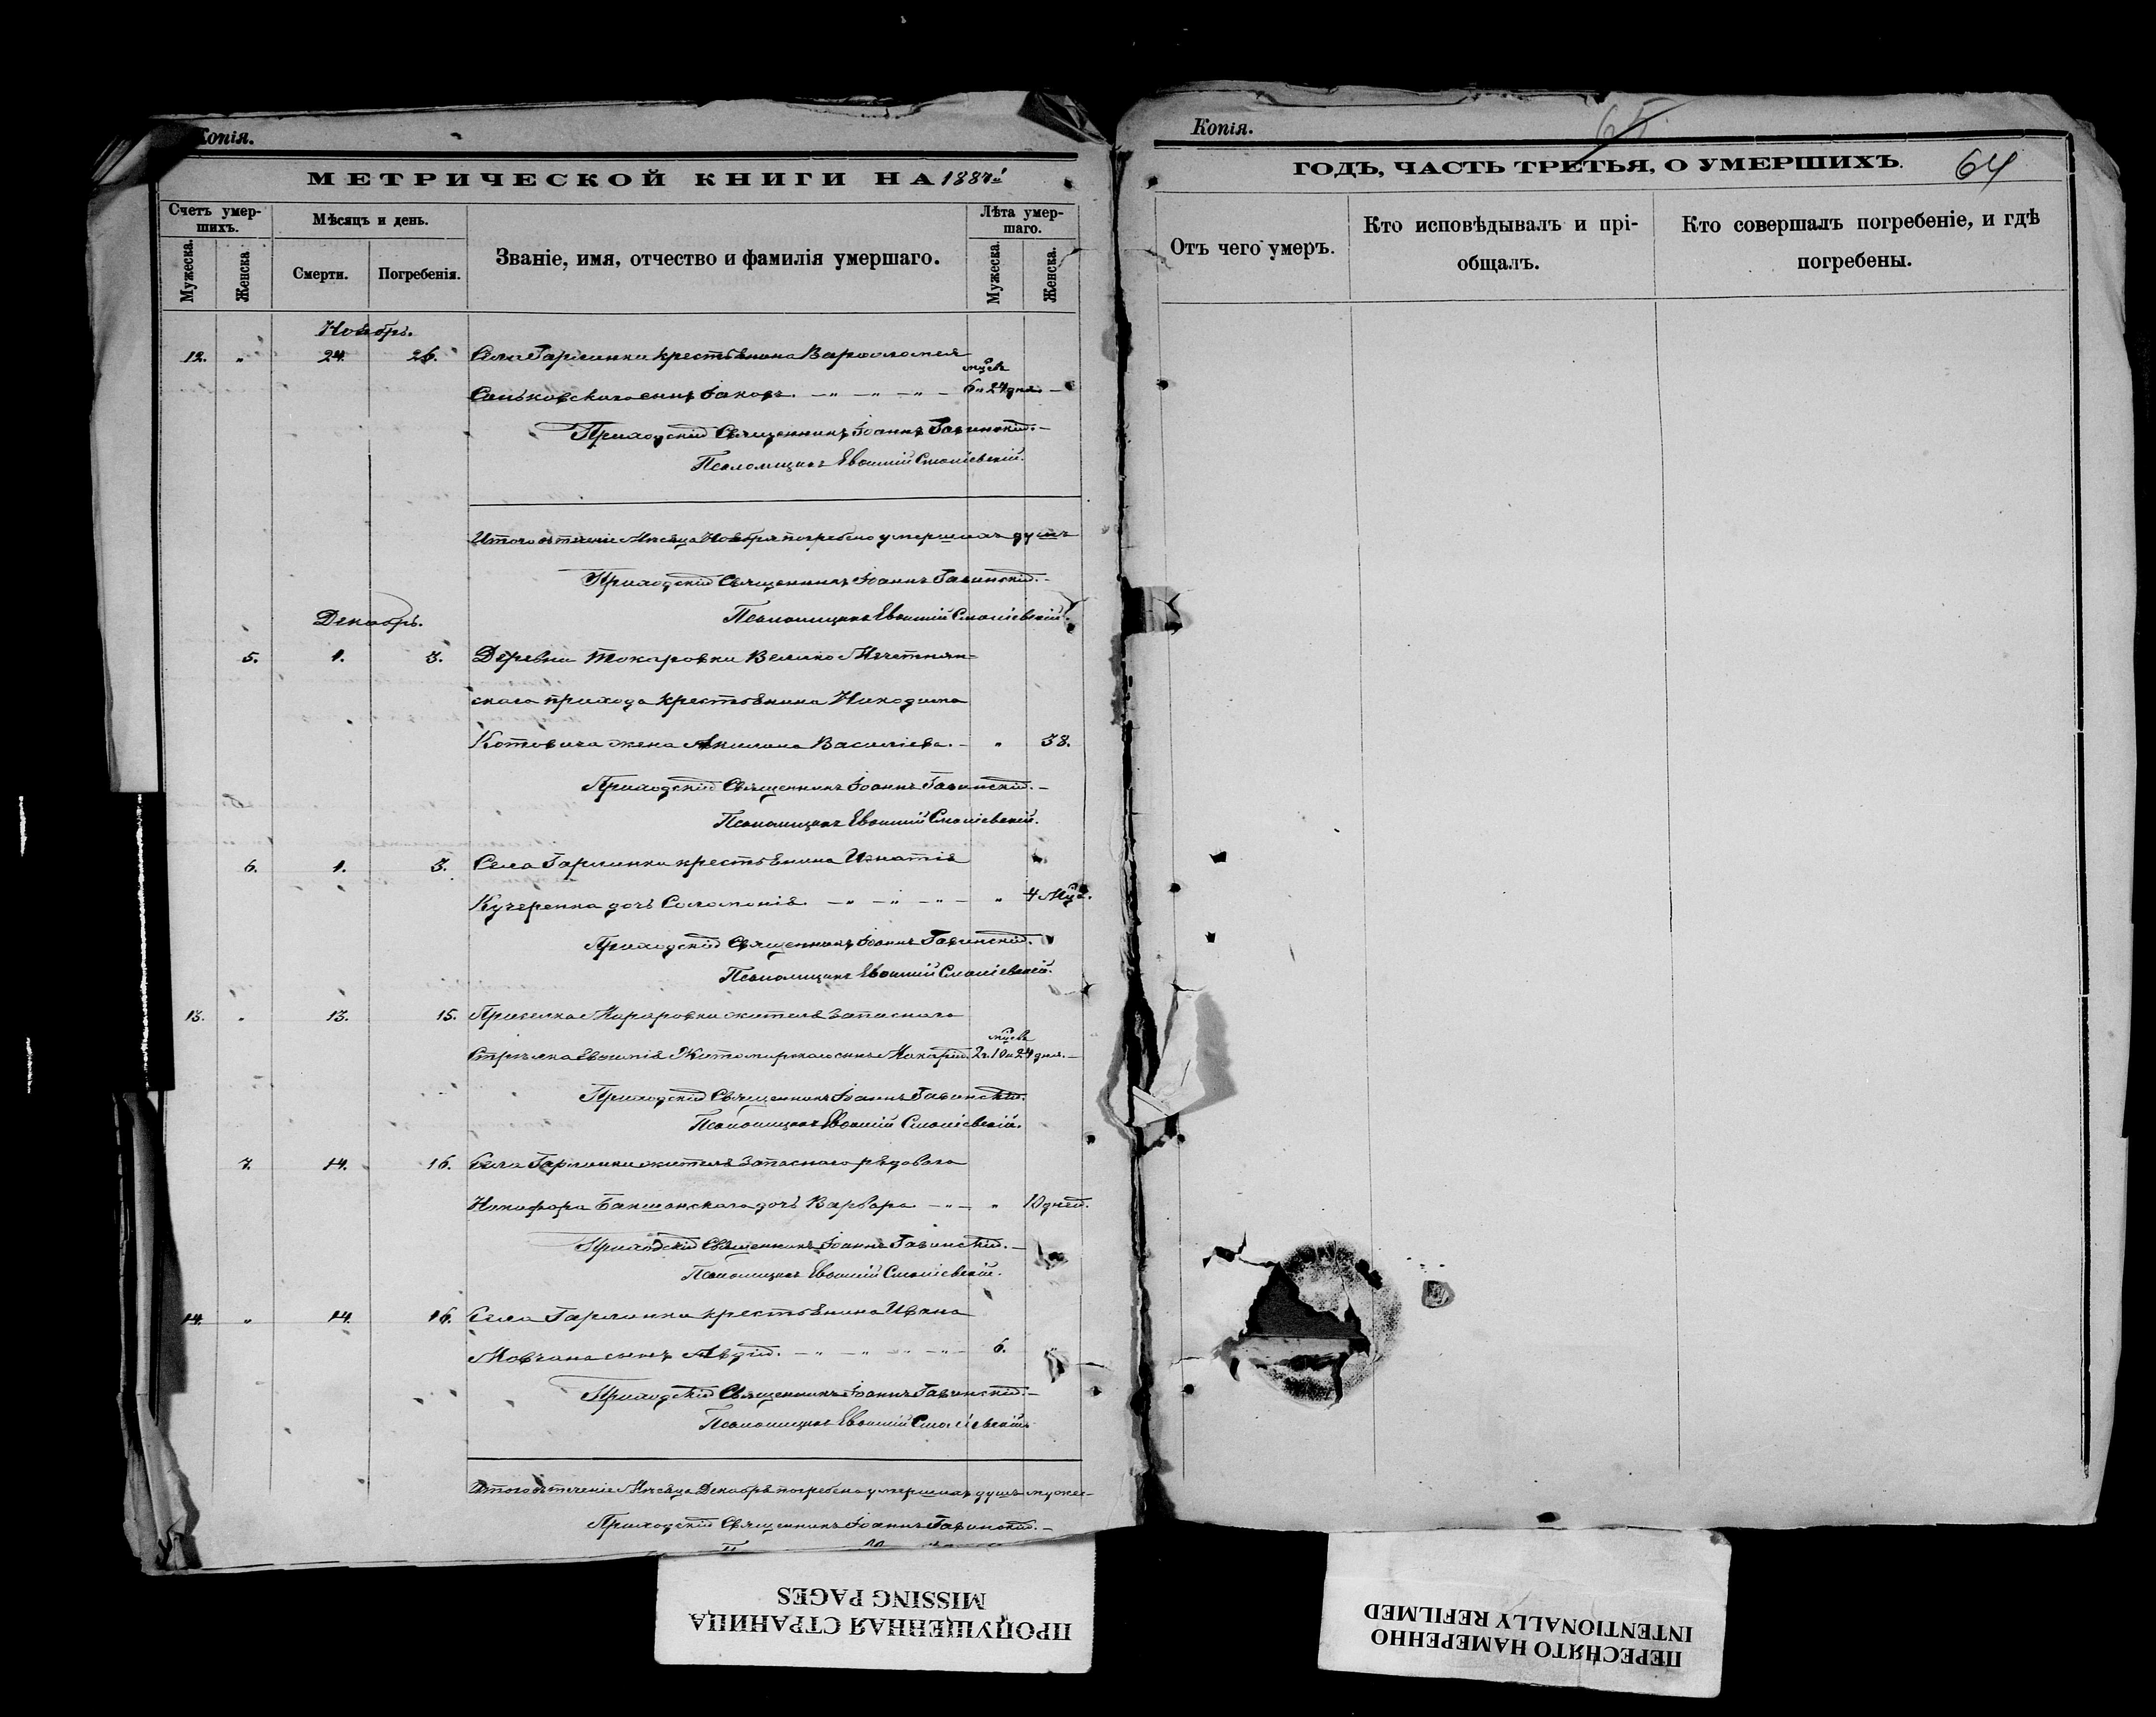 Копія.
МЕТРИЧЕСКОЙ КНИГИ НА 1887й
Счетъ умер-
шихъ.
Мѣсяцъ и день.
Званіе, имя, отчество и фамилія умершаго.
Лѣта умер-
шаго.
Мужеска.
Женска
Смерти.
Погребенія.
Мужеска.
Женска.
Ноябрь.
12. " 24. 26. Села Гарминки крестьянина Варѳоломея
мцевъ
сынъ Іаковъ. 6 и 24 дня. –
Приходскій Священникъ Іоаннъ
Псаломщикъ Евѳимій
Итого въ теченіе Мѣсяца Ноября погребено умершихъ душъ
Приходскій Священникъ Іоаннъ
Псаломщикъ Евѳимій
Декабрь.
5. 1. 3. Деревни Токаровки Велико
скаго прихода крестьянина Никодима
Котовича жена Акилина Василіева. – " 38.
Приходскій Священникъ Іоаннъ
Псаломщикъ Евѳимій
6. 1. 3. Села Гарминки крестьянина Игнатія
Кучеренка дочь Соломонія. " 4 Мца.
Приходскій Священникъ Іоаннъ
Псаломщикъ Евѳимій
13. " 13. 15. Приселка жителя запаснаго
мцевъ
Стрѣлка Евѳимія Житомирскаго сынъ Макарій. 2 г. 10 и 24 дня. –
Приходскій Священникъ Іоаннъ
Псаломщикъ Евѳимій
7. 14. 16. Села Гарминки жителя запаснаго рядоваго
Никифора дочь Варвара " 10 дней.
Приходскій Священникъ Іоаннъ
Псаломщикъ Евѳимій
14. " 14. 16. Села Гарминки крестьянина Ивана
Мовчана сынъ Авдій. 6. "
Приходскій Священникъ Іоаннъ
Псаломщикъ Евѳимій
Итого въ теченіе Мѣсяца Декабря погребено умершихъ душъ мужес-
Приходскій Священникъ Іоаннъ
Копія.
65
ГОДЪ, ЧАСТЬ ТРЕТЬЯ, О УМЕРШИХЪ.
64
Отъ чего умеръ.
Кто исповѣдывалъ и прі-
общалъ.
Кто совершалъ погребеніе, и гдѣ
погребены.
ПРОПУЩЕННАЯ СТРАНИЦА
MISSING PAGES
ПЕРЕСНЯТО НАМЕРЕННО
INTENTIONALLY REFILMED